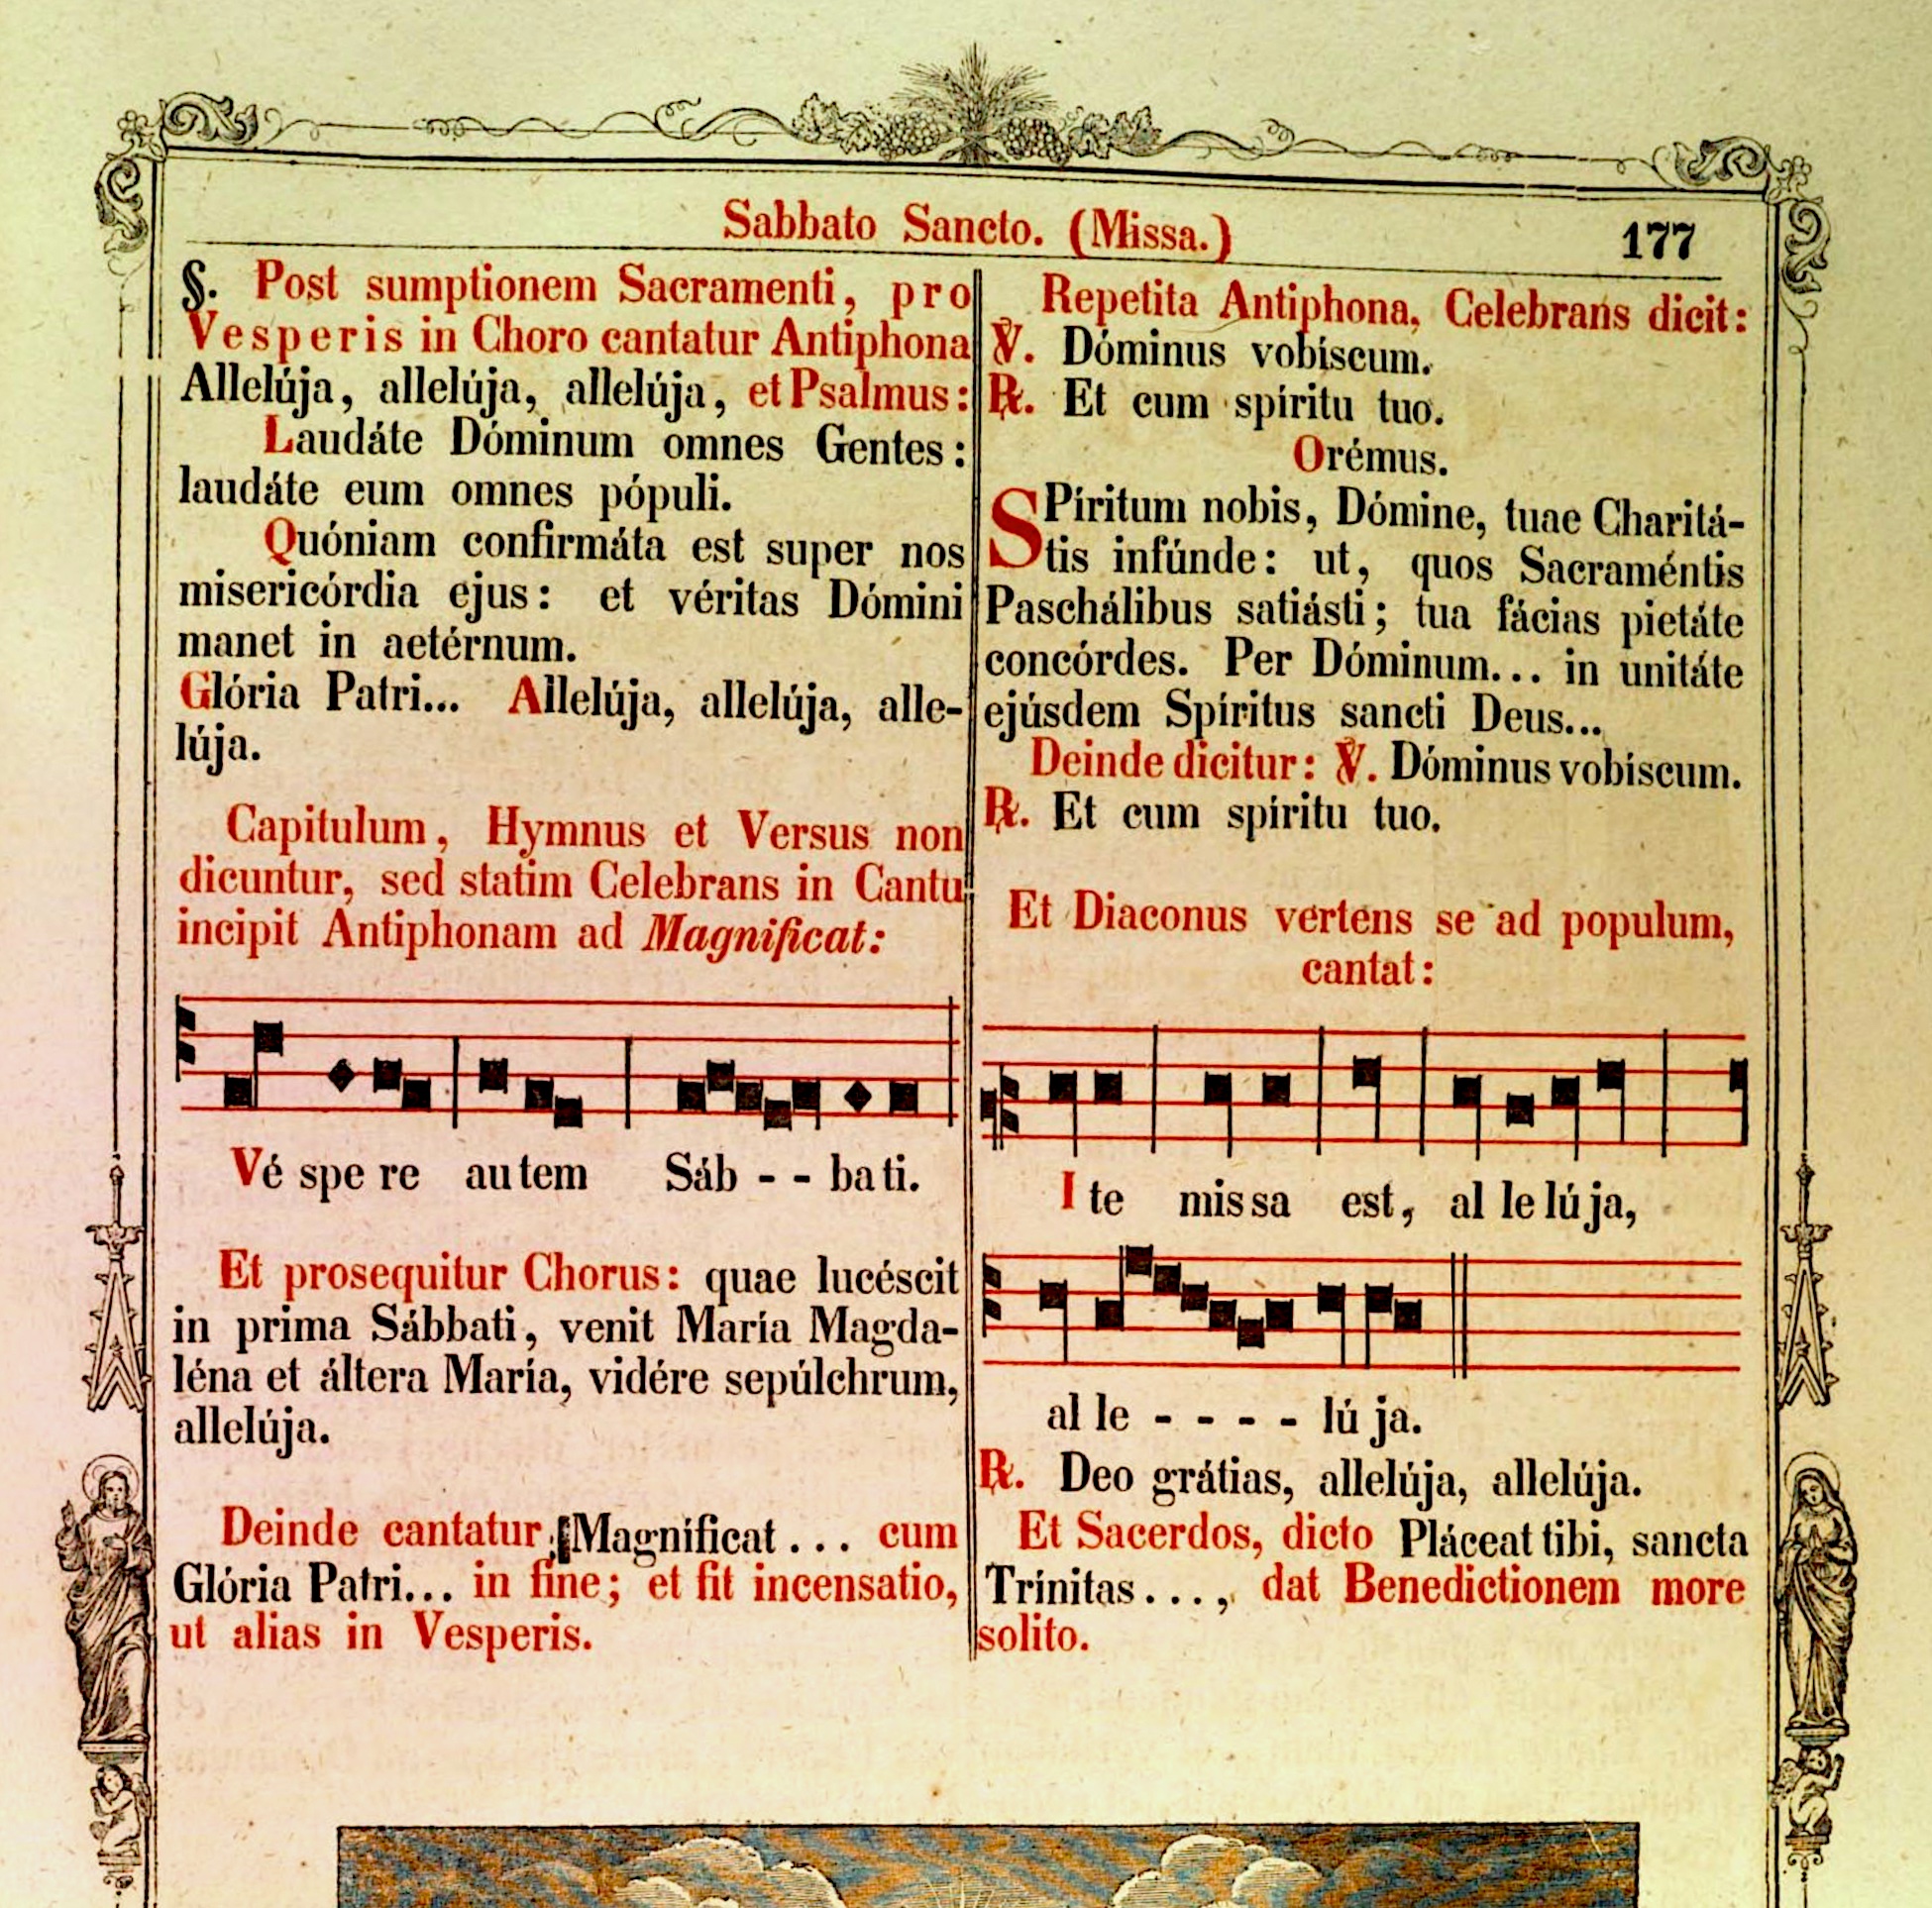 Sabbato Sancto. (Missa.) 177
§. Post sumptionem Sacramenti, pro
Vesperis in Choro cantatur Antiphona
Allelúja, allelúja, allelúja, et Psalmus:
Laudáte Dóminum omnes Gentes:
laudáte eum omnes pópuli.
Quóniam confirmáta est super nos
misericórdia ejus: et véritas Dómini
manet in aetérnum.
Glória Patri... Allelúja, allelúja, alle-
lúja.
Capitulum, Hymnus et Versus non
dicuntur, sed statim Celebrans in Cantu
incipit Antiphonam ad Magnificat:
Vé spe re au tem Sáb - - ba ti.
Et prosequitur Chorus: quae lucéscit
in prima Sábbati, venit María Magda-
léna et áltera María, vidére sepúlchrum,
allelúja.
Deinde cantatur Magníficat... cum
Glória Patri... in fine; et fit incensatio,
ut alias in Vesperis.
Repetita Antiphona, Celebrans dicit:
℣. Dóminus vobíscum.
℟. Et cum spíritu tuo.
Orémus.
SPíritum nobis, Dómine, tuae Charitá-
tis infúnde: ut, quos Sacraméntis
Paschálibus satiásti; tua fácias pietáte
concórdes. Per Dóminum... in unitáte
ejúsdem Spíritus sancti Deus...
Deinde dicitur: ℣. Dóminus vobíscum.
℟. Et cum spíritu tuo.
Et Diaconus vertens se ad populum,
cantat:
I te mis sa est, al le lú ja,
al le - - - - lú ja.
℟. Deo grátias, allelúja, allelúja.
Et Sacerdos, dicto Pláceat tibi, sancta
Trínitas..., dat Benedictionem more
solito.